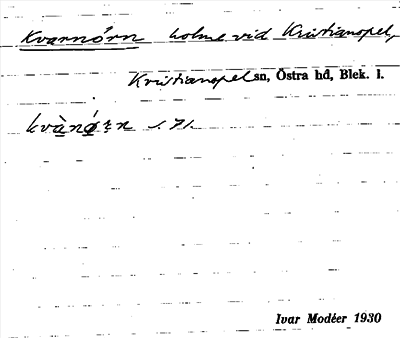 Kvarnörn holme vid Kristianopel,
Kristianopel sn, Östra hd, Blek. l.
kvànǿrn s. 71.
Ivar Modéer 1930